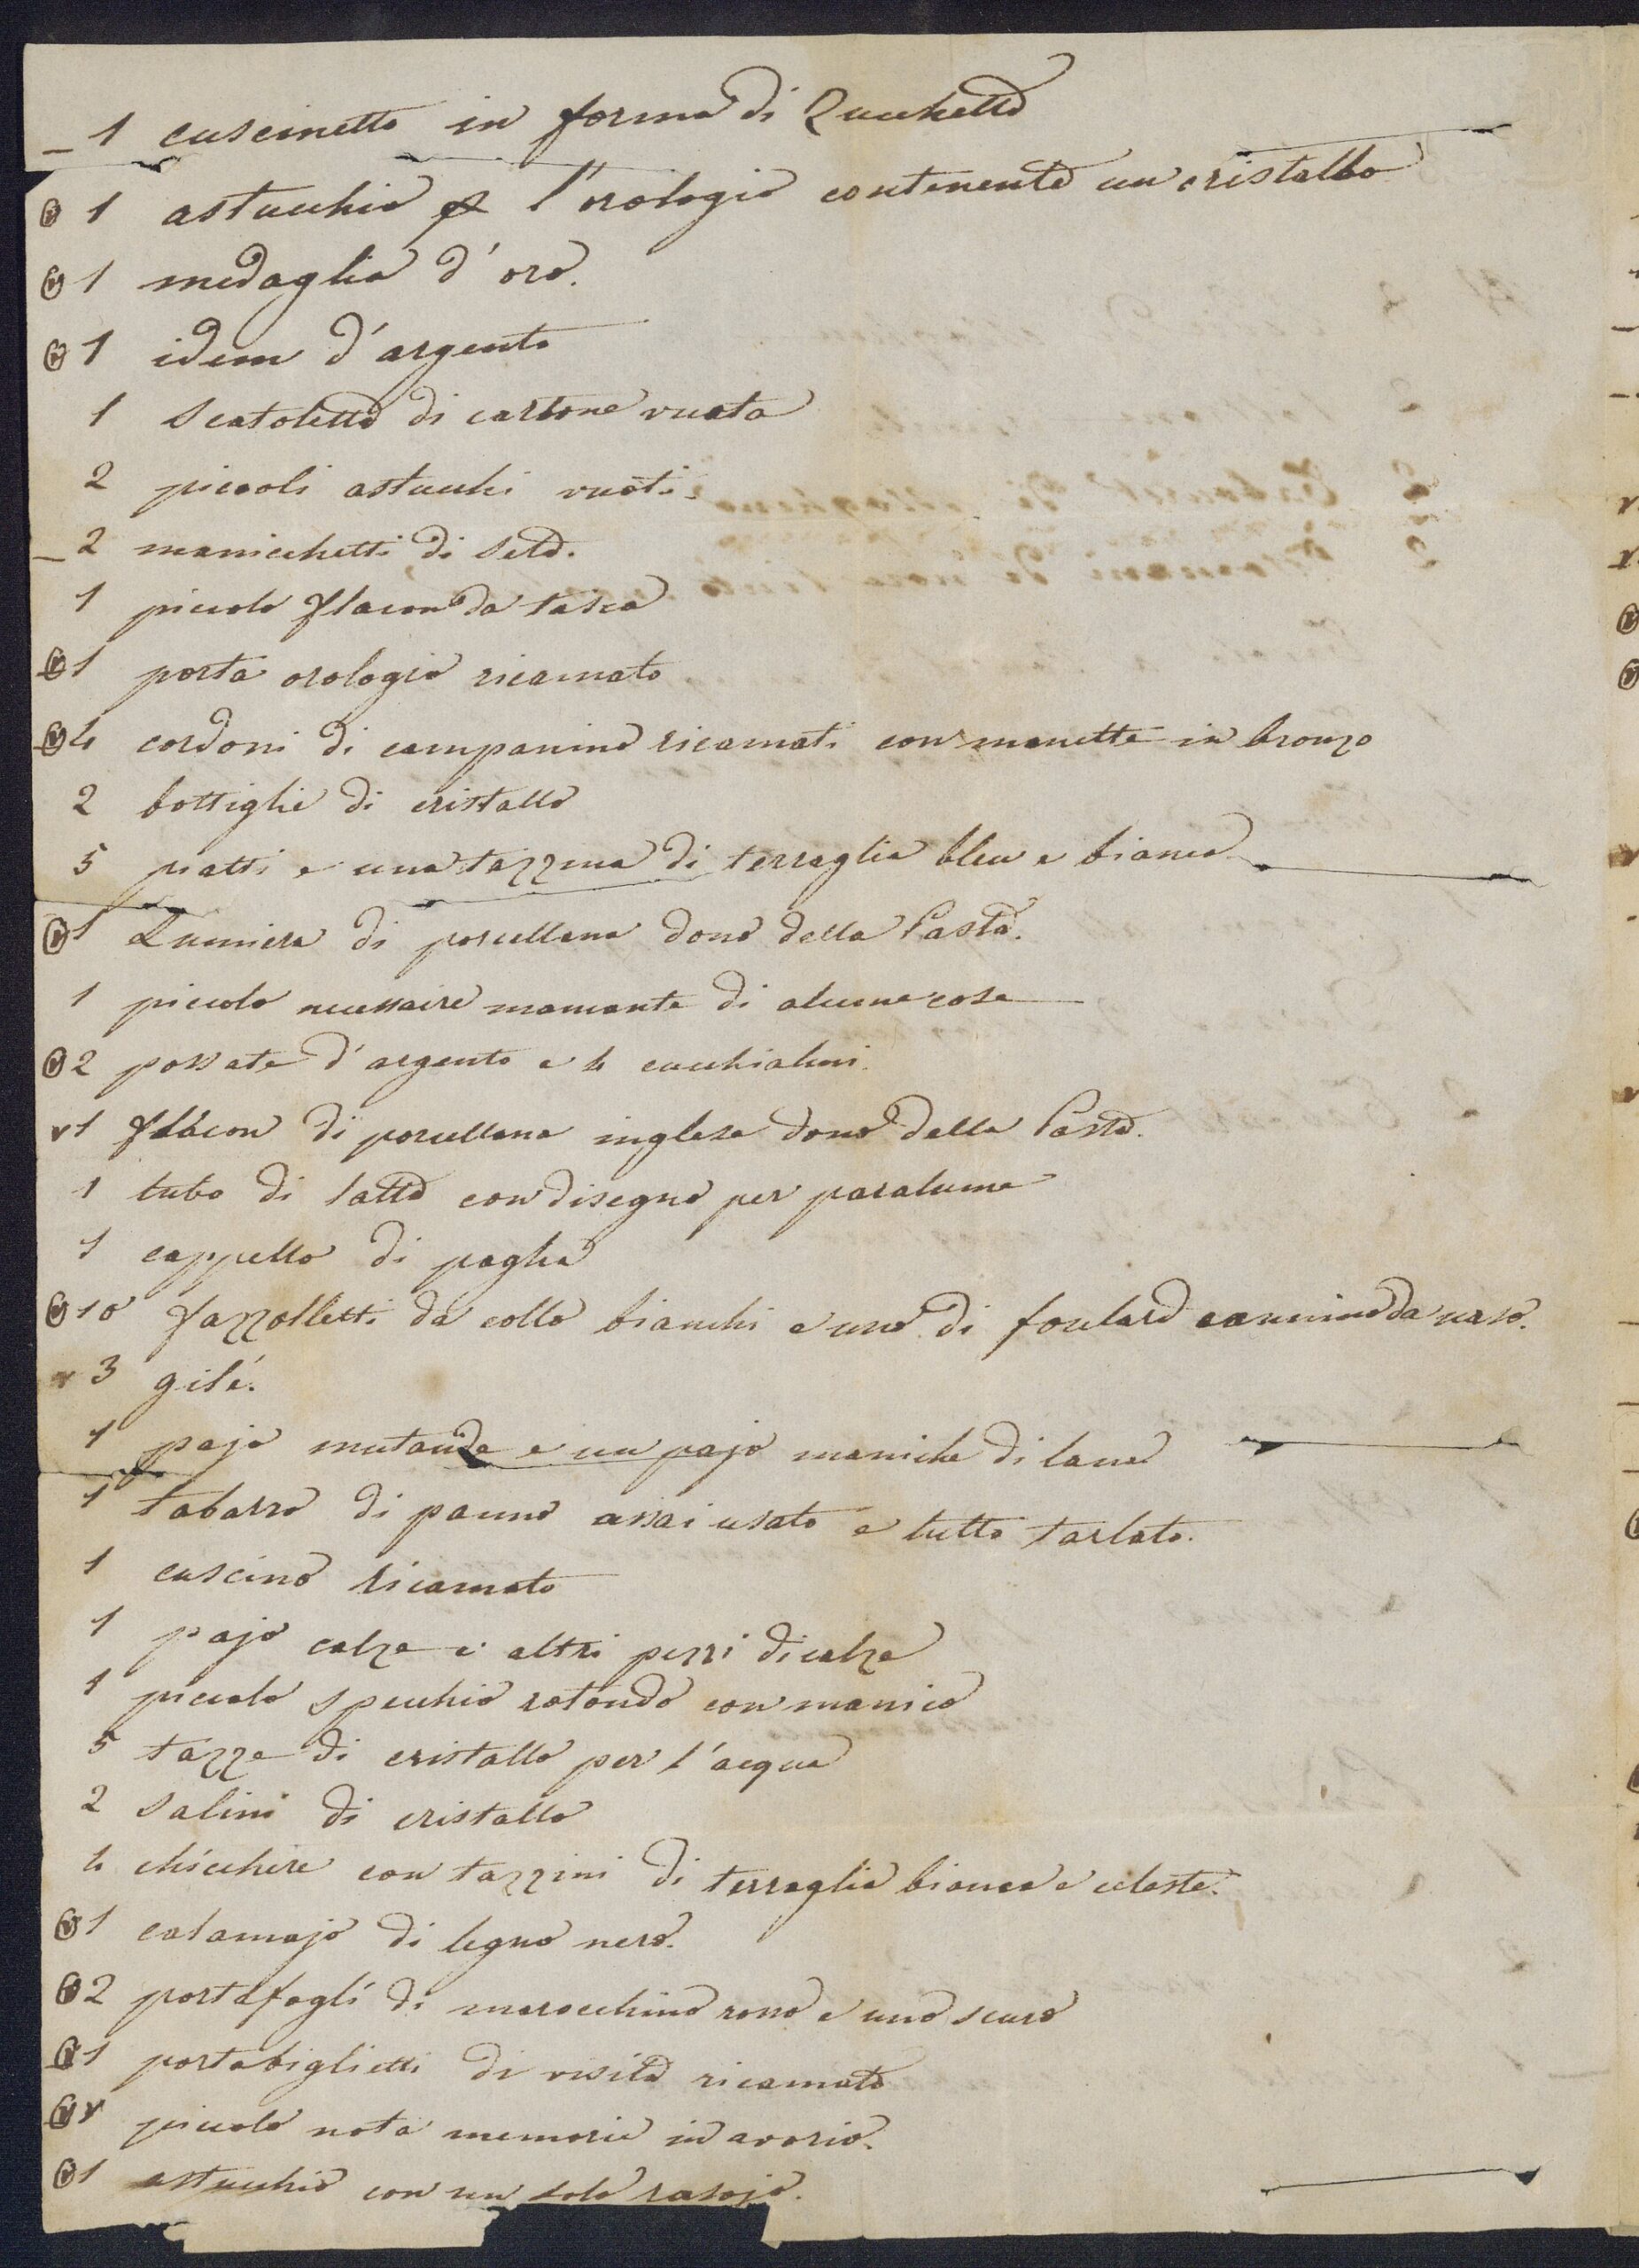 1 cuscinetto in forma di Zucchetto
1 astucchio p l'orologio contenente un cristallo
1 medaglia d'oro.
1 idem d'argento
1 Scatoletta di cartone vuota
2 piccoli astucchi vuoti.
2 manicchetti di seta.
1 piccolo flacon da tasca
1 porta orologio ricamato
4 cordoni di campanino ricamati con manette in bronzo
2 bottiglie di cristallo
5 piatti e una tazzina di terraglia bleu e bianca
1 Lumiera di porcellana dono della Pasta.
1 piccolo necessaire mancante di alcune cose
2 possate d'argento e 4 cucchialini.
1 flacon di porcellana inglese dono della Pasta.
1 tubo di latta con disegno per paralume
1 cappello di paglia
10 fazzolletti da collo bianchi e uno di foulard da naso.
3 gilé.
1 pajo mutande e un pajo maniche di lana
1 tabarro di panno assai usato e tutto tarlato.
1 cuscino ricamato
1 pajo calze e altri pezzi di calze
1 piccolo specchio rotondo con manico
5 tazze di cristallo per l'acqua
2 Salini di cristallo
4 chicchere con tazzini di terraglia bianca e celeste.
1 calamajo di legno nero.
2 portafogli di marocchino rosso e uno scuro
1 portabiglietti di visita ricamato
piccolo nota memorie in avorio.
1 astucchio con un solo rasojo.